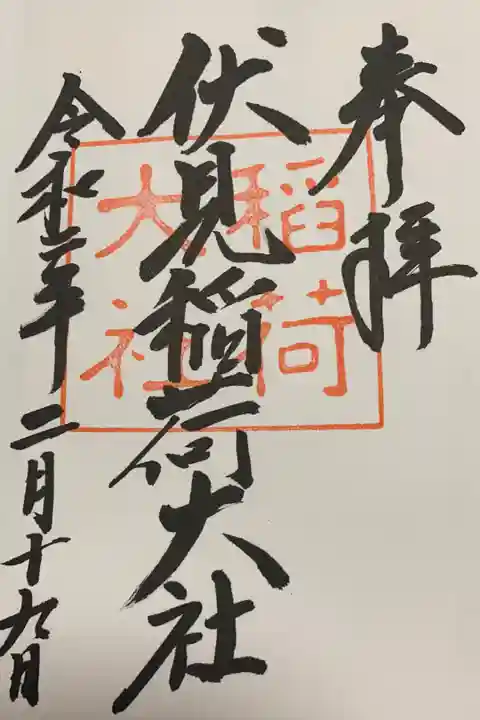 奉拝
伏見稲荷大社
令和二年二月十九日
稲荷
大社